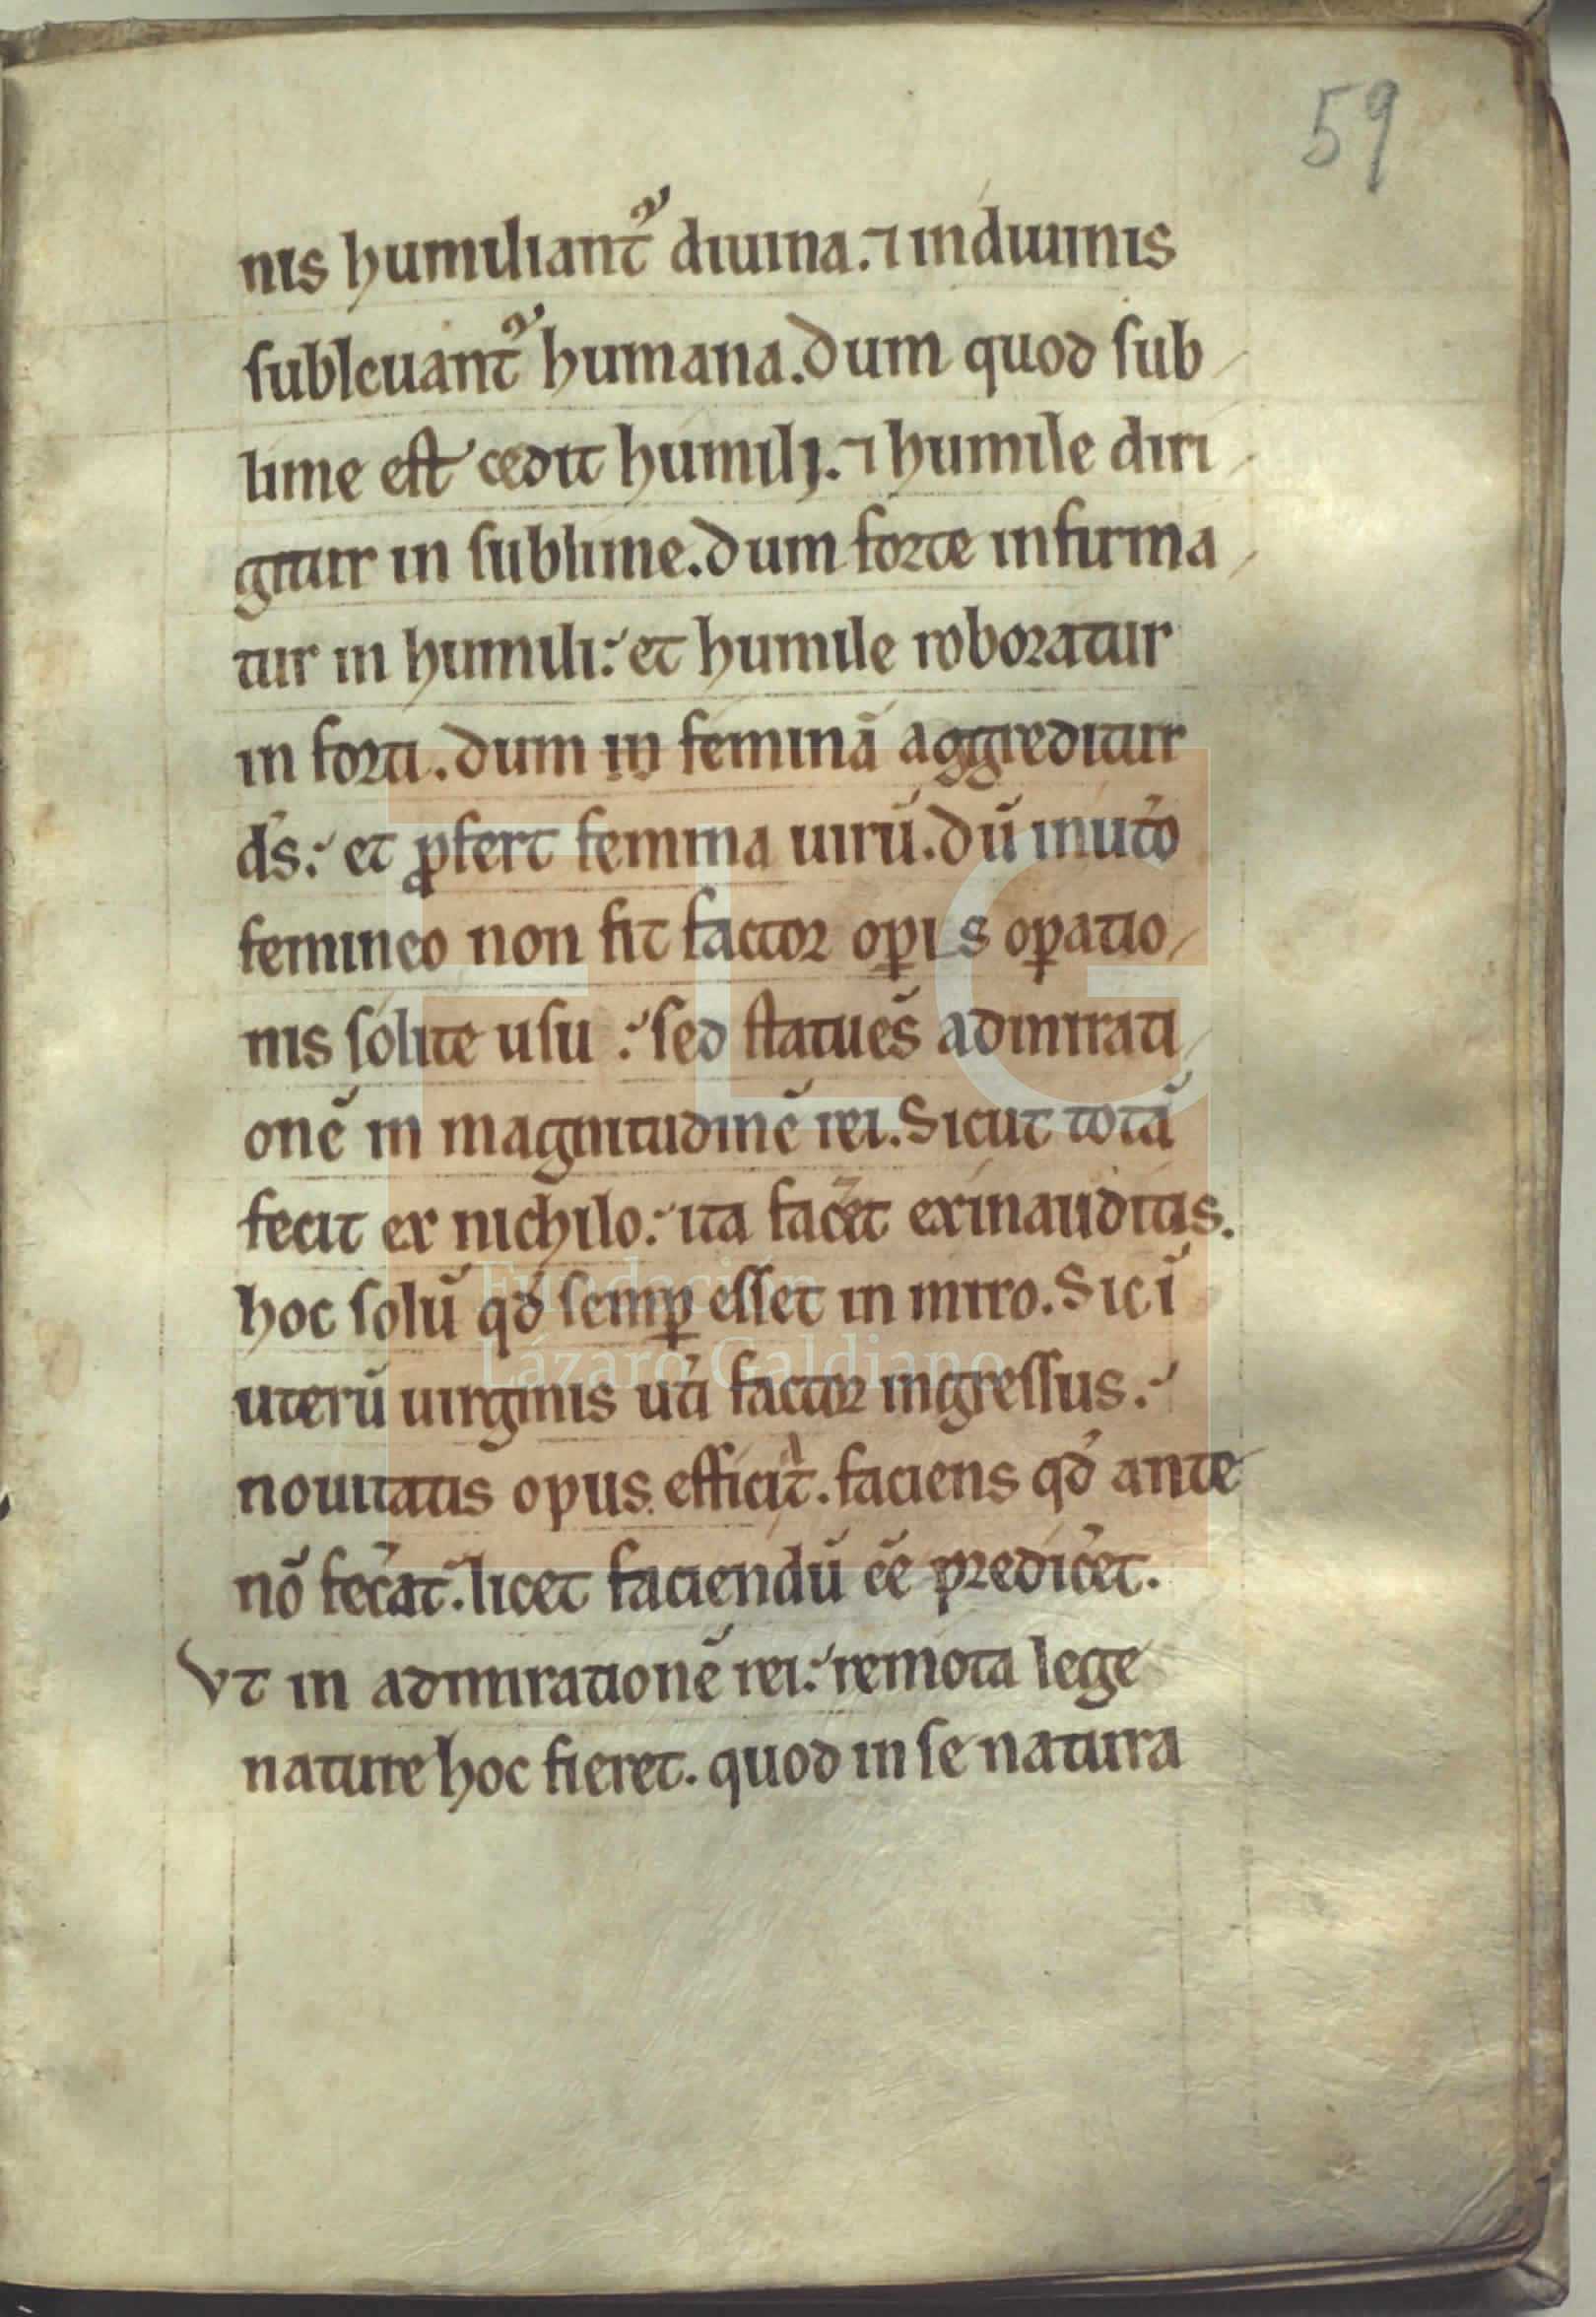 59
nis humiliant᷑ diuina. ⁊ in diuinis
subleuant᷑ humana. dum quod sub
lime est cedit humilj. ⁊ humile diri
gitur in sublime. dum forte infirma
tur in humili: et humile roboratur
in forti. dum in feminā aggreditur
ds̄: et ꝓfert femina uirū. dū in utō
femineo non fit factor oꝑis oꝑatio
nis solite usu : sed statuēs admirati
onē in magnitudinē rei. Sicut totā
fecit ex nichilo: ita fac̄et ex inauditis.
hoc solū qd̄ semꝑ esset in miro. Sic ī
uterū uirginis utī factor ingressus:
nouitatis opus efficit᷑. faciens qd̄ ante
nō fec̄at. licet faciendū eē predic̄et.
Vt in admirationē rei: remota lege
nature hoc fieret. quod in se natura
Fundación
Lázaro Galdiano
FLG